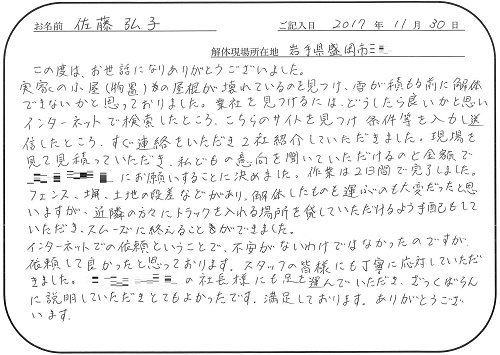 お名前 佐藤 弘子 ご記入日 2017 年 11 月 30 日
解体現場所在地 岩手県盛岡市三
この度は、お世話になりありがとうございました。
実家の小屋(物置)の屋根が壊れているのを見つけ、雪が積もる前に解体
できないかと思っておりました。業社を見つけるには、どうしたら良いかと思い
インターネットで検索したところ、こちらのサイトを見つけ 条件等を入力し送
信したところ、すぐ連絡をいただき2社紹介していただきました。現場を
見て見積っていただき、私どもの意向を聞いていただけるのと金額で
にお願いすることに決めました。作業は2日間で完了しました。
フェンス、塀、土地の段差などがあり、解体したものを運ぶのも大変だったと思
いますが、近隣の方々にトラックを入れる場所を貸していただけるよう手配もして
いただき、スムーズに終えることができました。
インターネットでの依頼ということで、不安がないわけではなかったのですが、
依頼して良かったと思っております。スタッフの皆様にも丁寧に応対していただ
きました。 の社長様にも足を運んでいただき、ざっくばらん
に説明していただきとてもよかったです。満足しております。ありがとうござ
います。